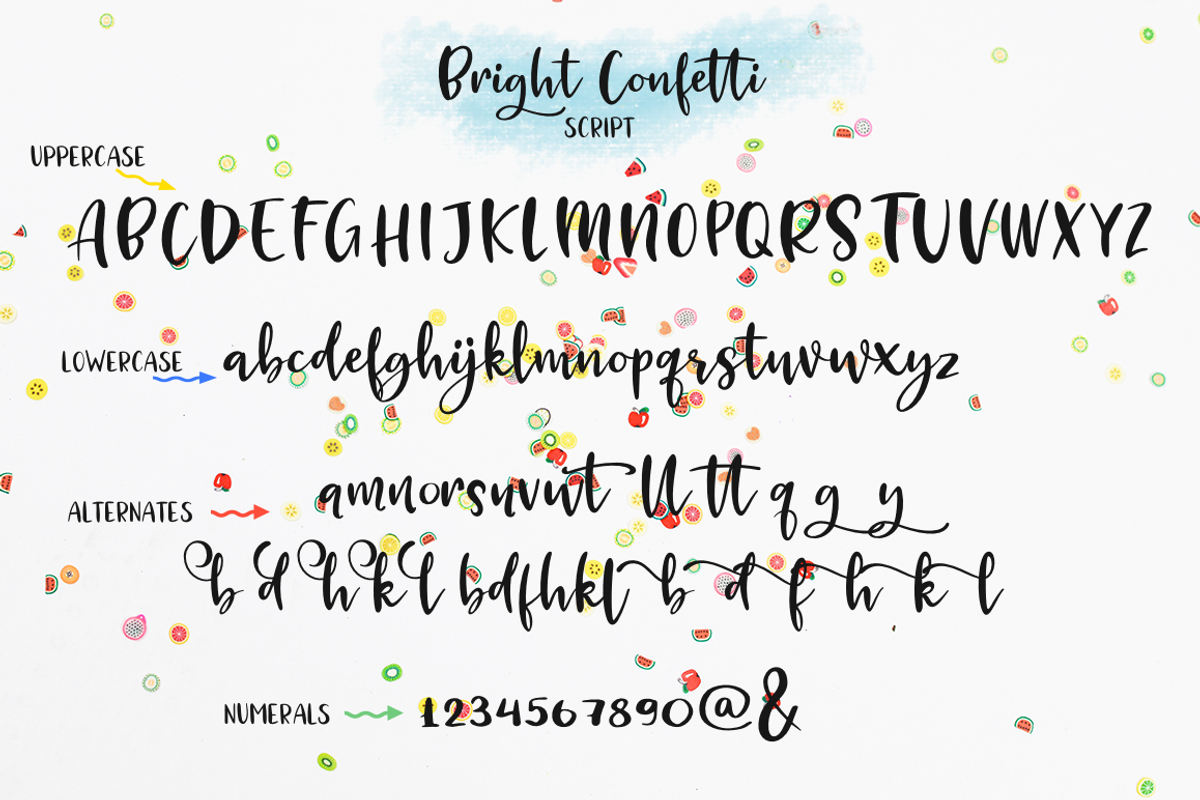 Bright Confetti
SCRIPT
UPPERCASE
ABCDEFGHIJKLMNOPQRSTUVWXYZ
LOWERCASE
abcdefghijklmnopqrstuvwxyz
ALTERNATES
amnorsuvwt ll tt q g y
b d h k l bdfhkl b d f h k l
NUMERALS
1234567890@&